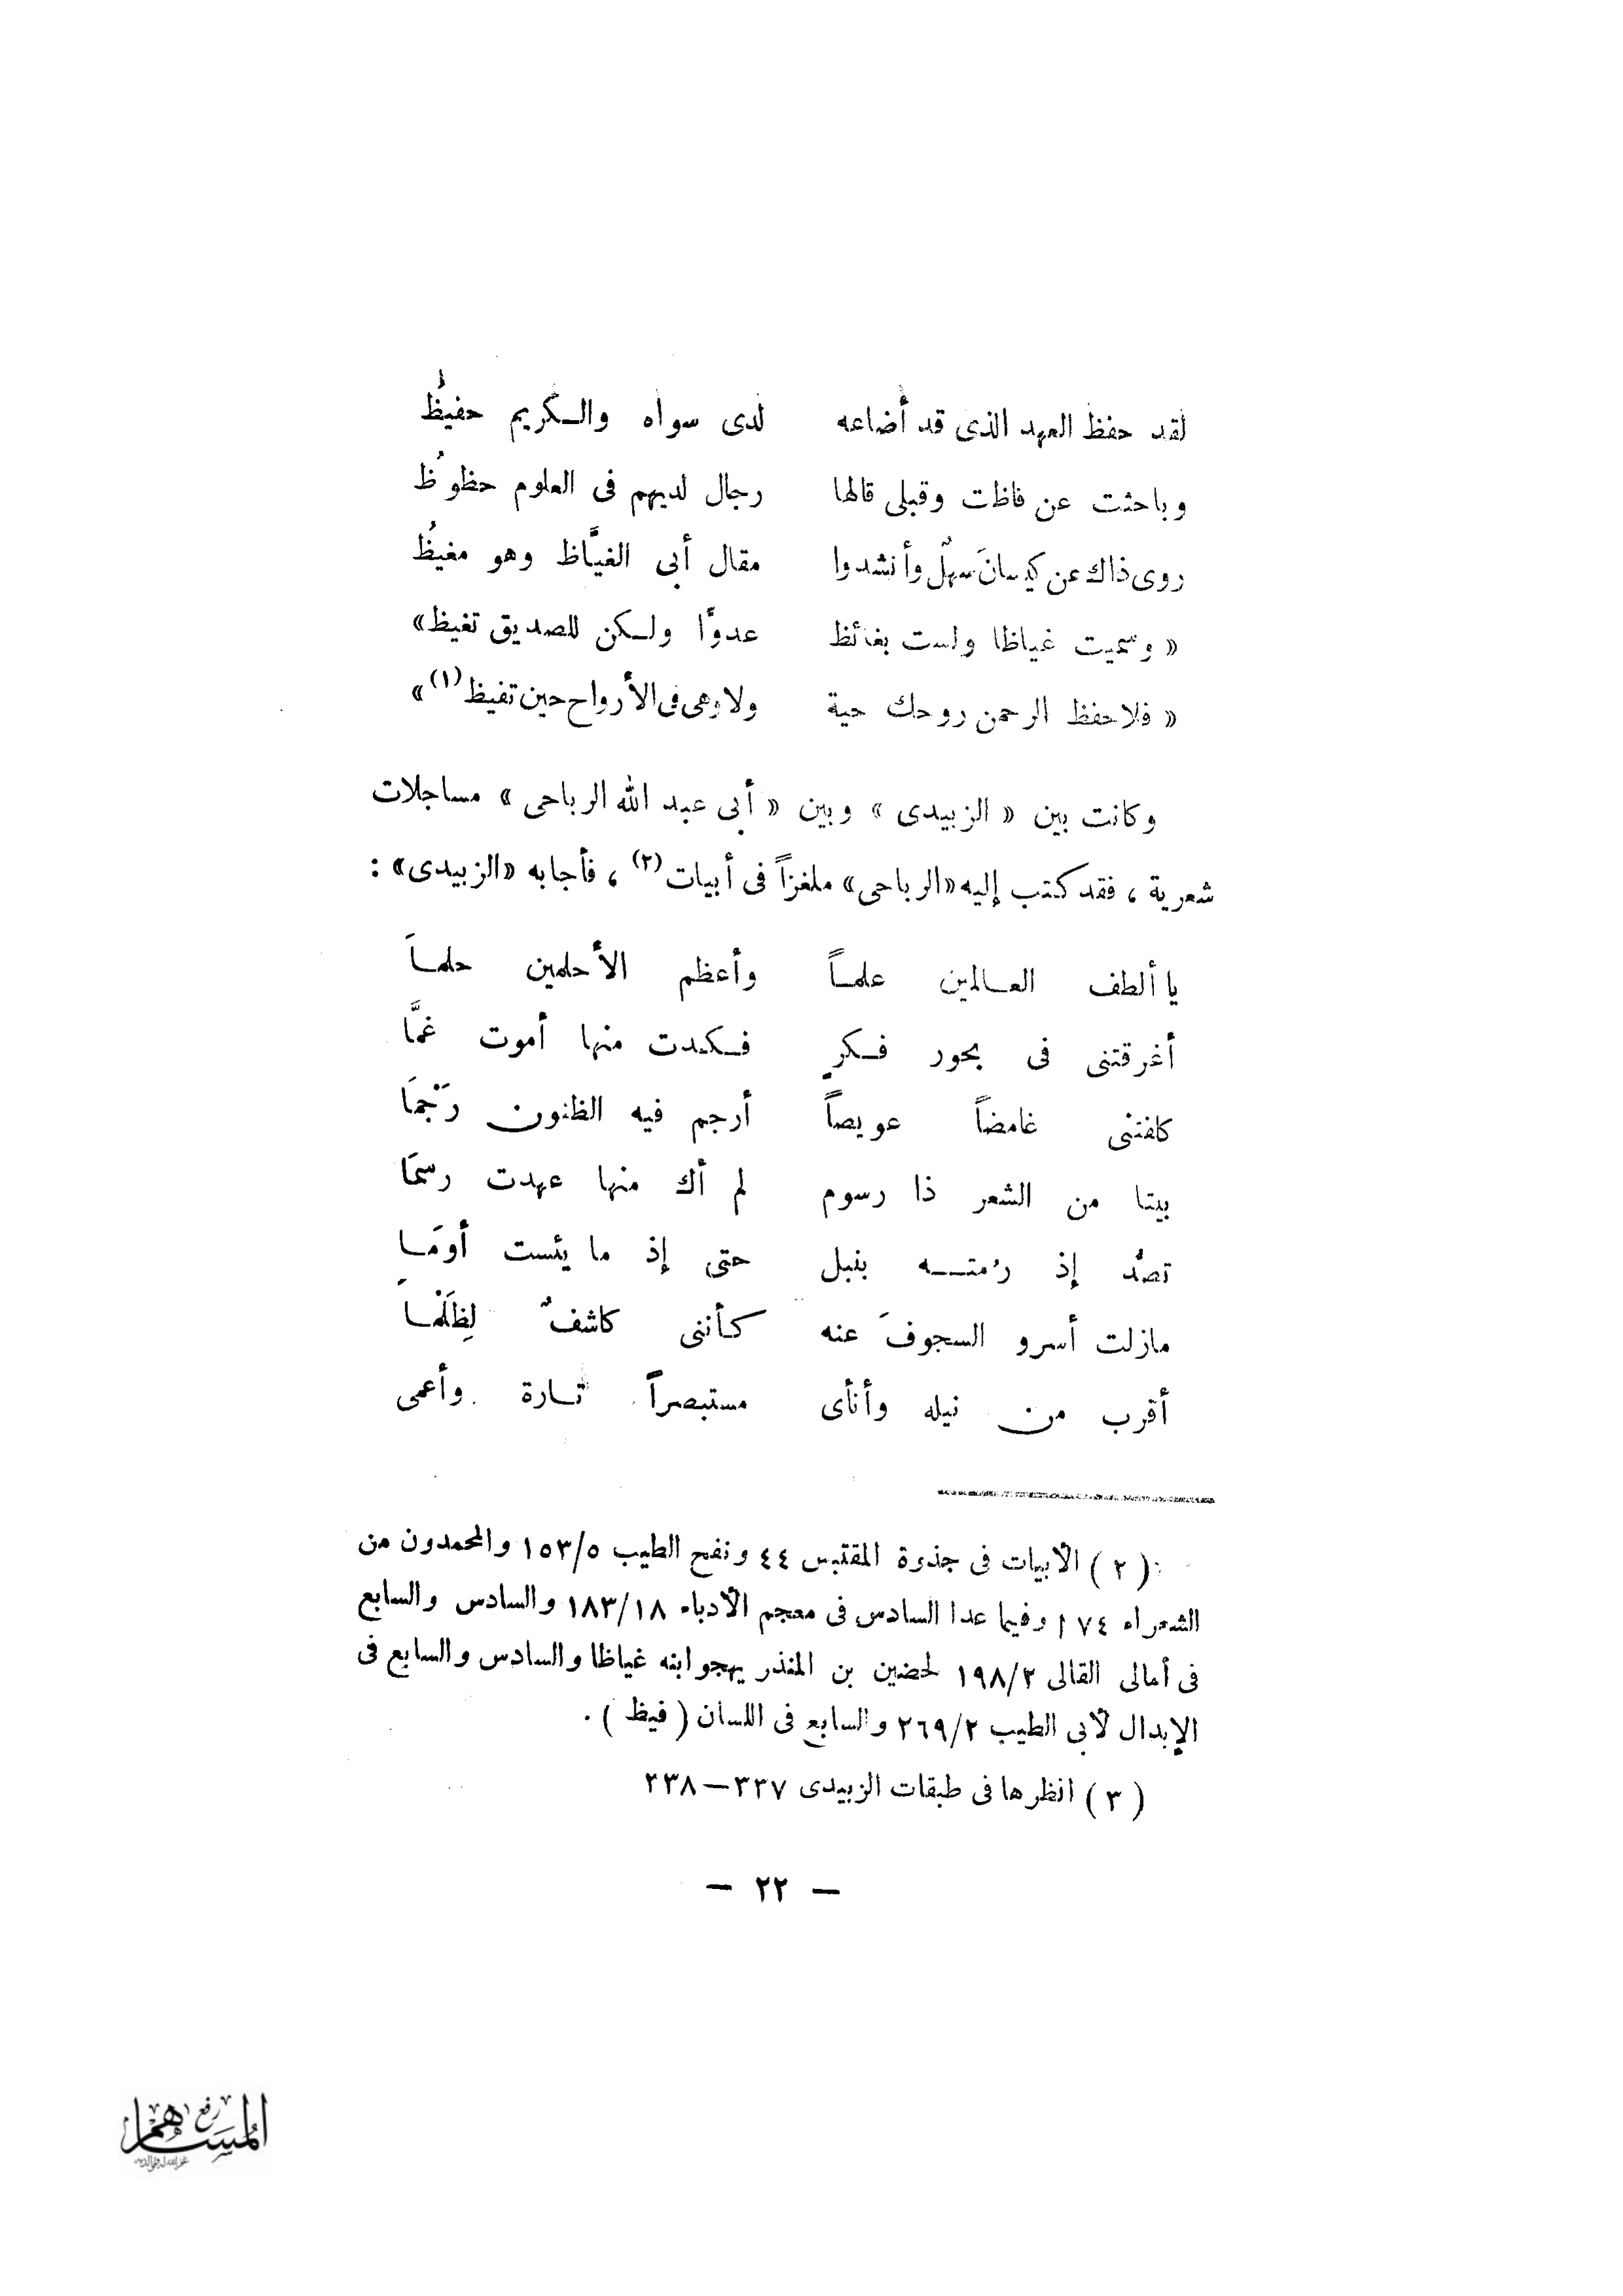 لقد حفظ العهد الذى قد أضاعه لدى سواه والكريم حفيظُ
وباحثت عن فاظت وقبلى قالها رجال لديهم فى العلوم حظوظُ
روى ذاك عن كيسانَ سهلٌ وأنشدوا مقال أبى الغيَّاظ وهو مغيظُ
« وسميت غياظا ولست بغائظ عدوًّا ولكن للصديق تغيظ »
« فلا حفظ الرحمن روحك حية ولا وهى فى الأرواح حين تفيظ (١) »
وكانت بين « الزبيدى » وبين « أبى عبد الله الرباحى » مساجلات
شعرية ، فقد كتب إليه «الرباحى» ملغزاً فى أبيات (٢) ، فأجابه «الزبيدى» :
يا ألطف العالمين علماً وأعظم الأحلمين حلماَ
أغرقتنى فى بحور فكرٍ فكدت منها أموت غمَّا
كلفتنى غامضاً عويصاً أرجم فيه الظنون رَجْمَا
بيتا من الشعر ذا رسوم لم أك منها عهدت رسمَا
تصدُّ إذ رُمته بنبل حتى إذ ما يئست أومَا
مازلت أسرو السجوفَ عنه كأننى كاشفٌ لِظَلْمَا
أقرب من نيله وأنأى مستبصراً تارة وأعمى
( ٢ ) الأبيات فى جذوة المقتبس ٤٤ ونفح الطيب ١٥٣/٥ والمحمدون من
الشعراء ١٧٤ وفيما عدا السادس فى معجم الأدباء ١٨٣/١٨ والسادس والسابع
فى أمالى القالى ١٩٨/٢ لحضين بن المنذر يهجو ابنه غياظا والسادس والسابع فى
الإبدال لأبى الطيب ٢٦٩/٢ والسابع فى اللسان ( فيظ ) .
( ٣ ) انظرها فى طبقات الزبيدى ٣٣٧ – ٣٣٨
– ٢٢ –
رفع
المساهم